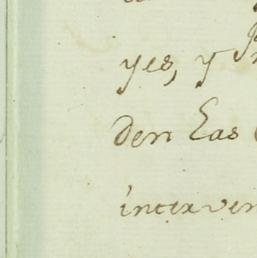 yes, y
den Eas
interven